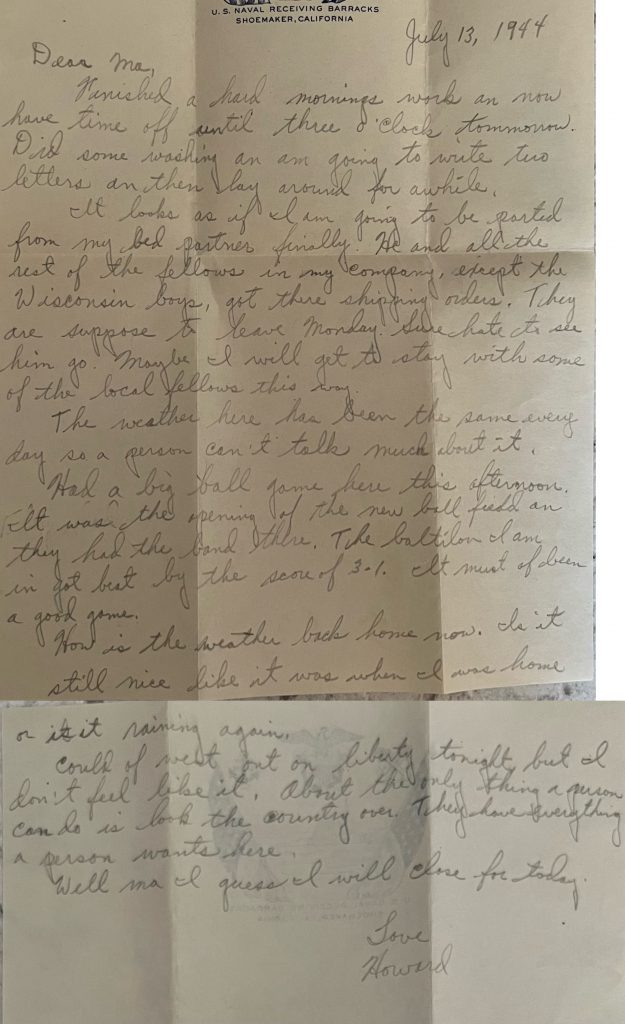 U.S. NAVAL RECEIVING BARRACKS
SHOEMAKER, CALIFORNIA
July 13, 1944
Dear Ma,
Finished a hard mornings work an now
have time off until three o'clock tommorrow.
Did some washing an am going to write two
letters an then lay around for awhile.
It looks as if I am going to be parted
from my bed partner finally. He and all the
rest of the fellows in my company, except the
Wisconsin boys, got there shipping orders. They
are suppose to leave Monday. Sure hate to see
him go. Maybe I will get to stay with some
of the local fellows this way.
The weather here has been the same every
day so a person can't talk much about it.
Had a big ball game here this afternoon.
It was the opening of the new ball field an
they had the band there. The baltilon I am
in got beat by the score of 3-1. It must of been
a good game.
How is the weather back home now. Is it
still nice like it was when I was home
or is it raining again.
Could of went out on liberty tonight but I
don't feel like it. About the only thing a person
can do is look the country over. They have everything
a person wants here.
Well ma I guess I will close for today.
Love
Howard